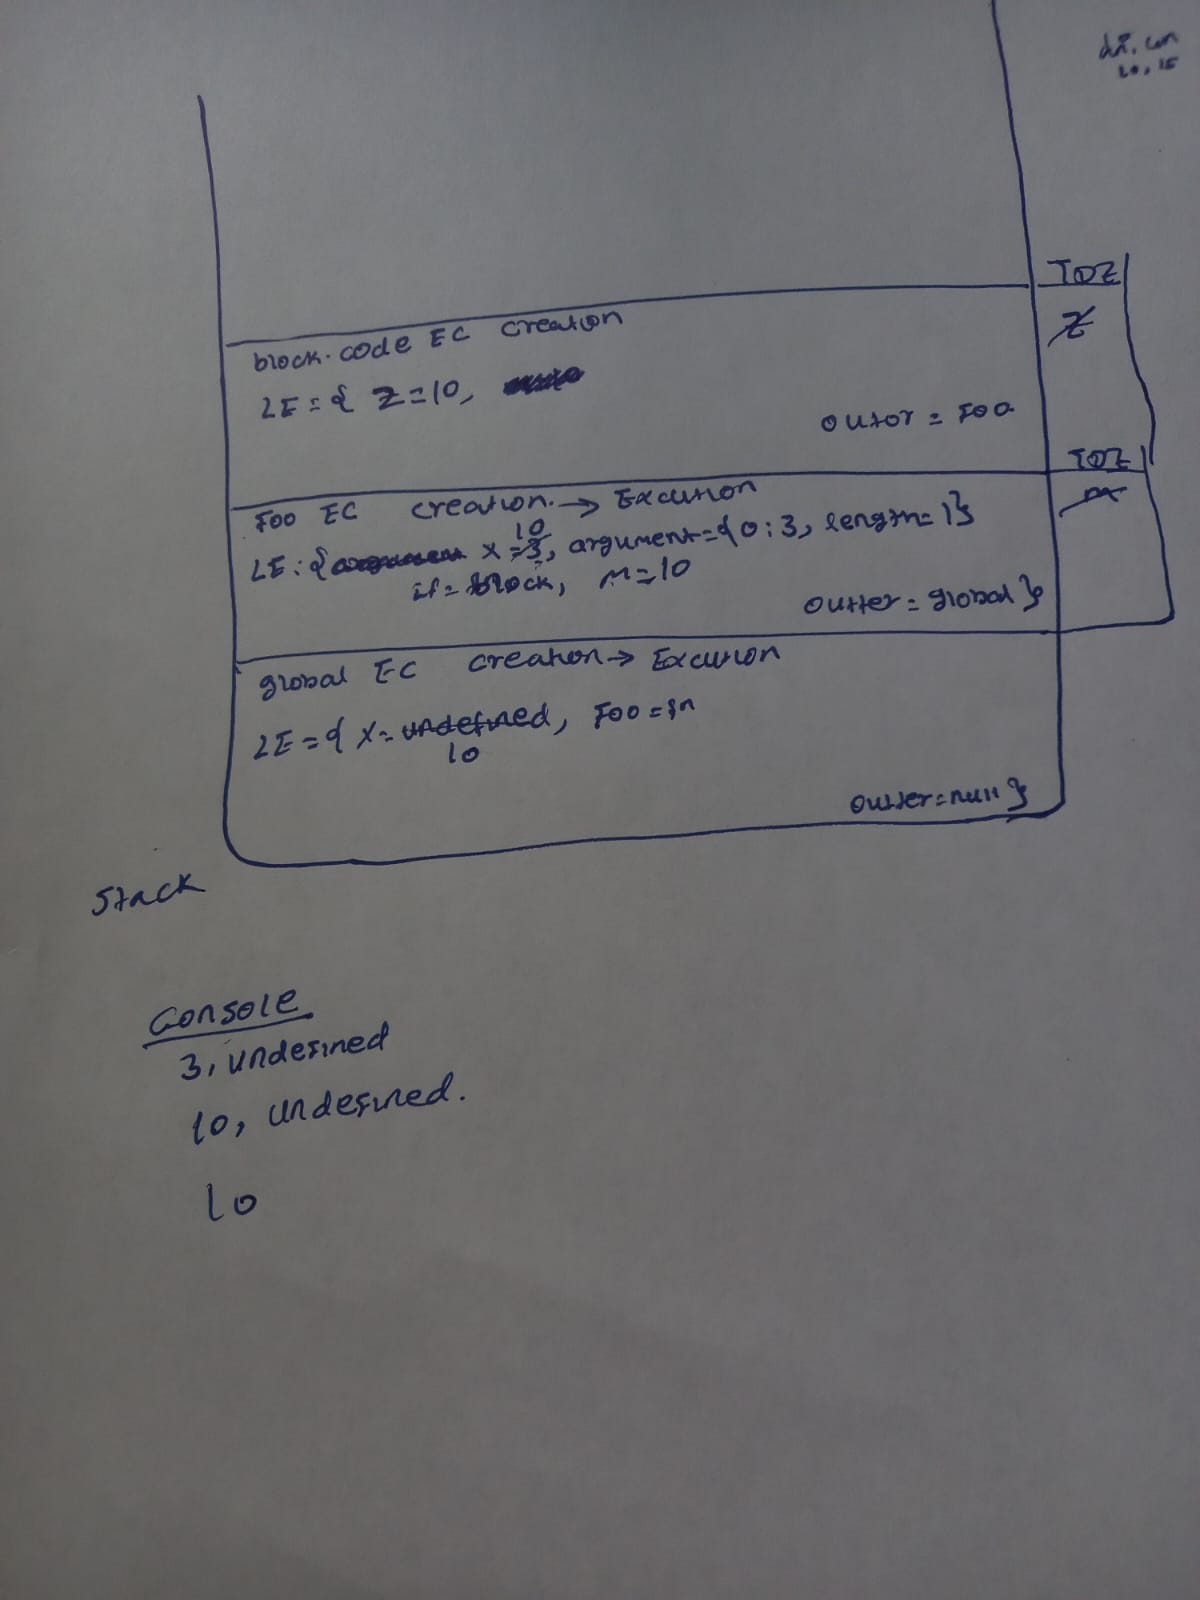 TDZ
block. code EC creation
Z
LE = { Z = 10,
outor = Foo
TDZ
Foo EC creation. → Excution
10
LE : { x = 3, argument = { 0 : 3, length = 1}
if = block, m = 10
outter = global }
global EC creation → Excution
LE = { x = undefined, Foo = fn
10
outter = null }
Stack
Console
3, undefined
10, undefined.
10